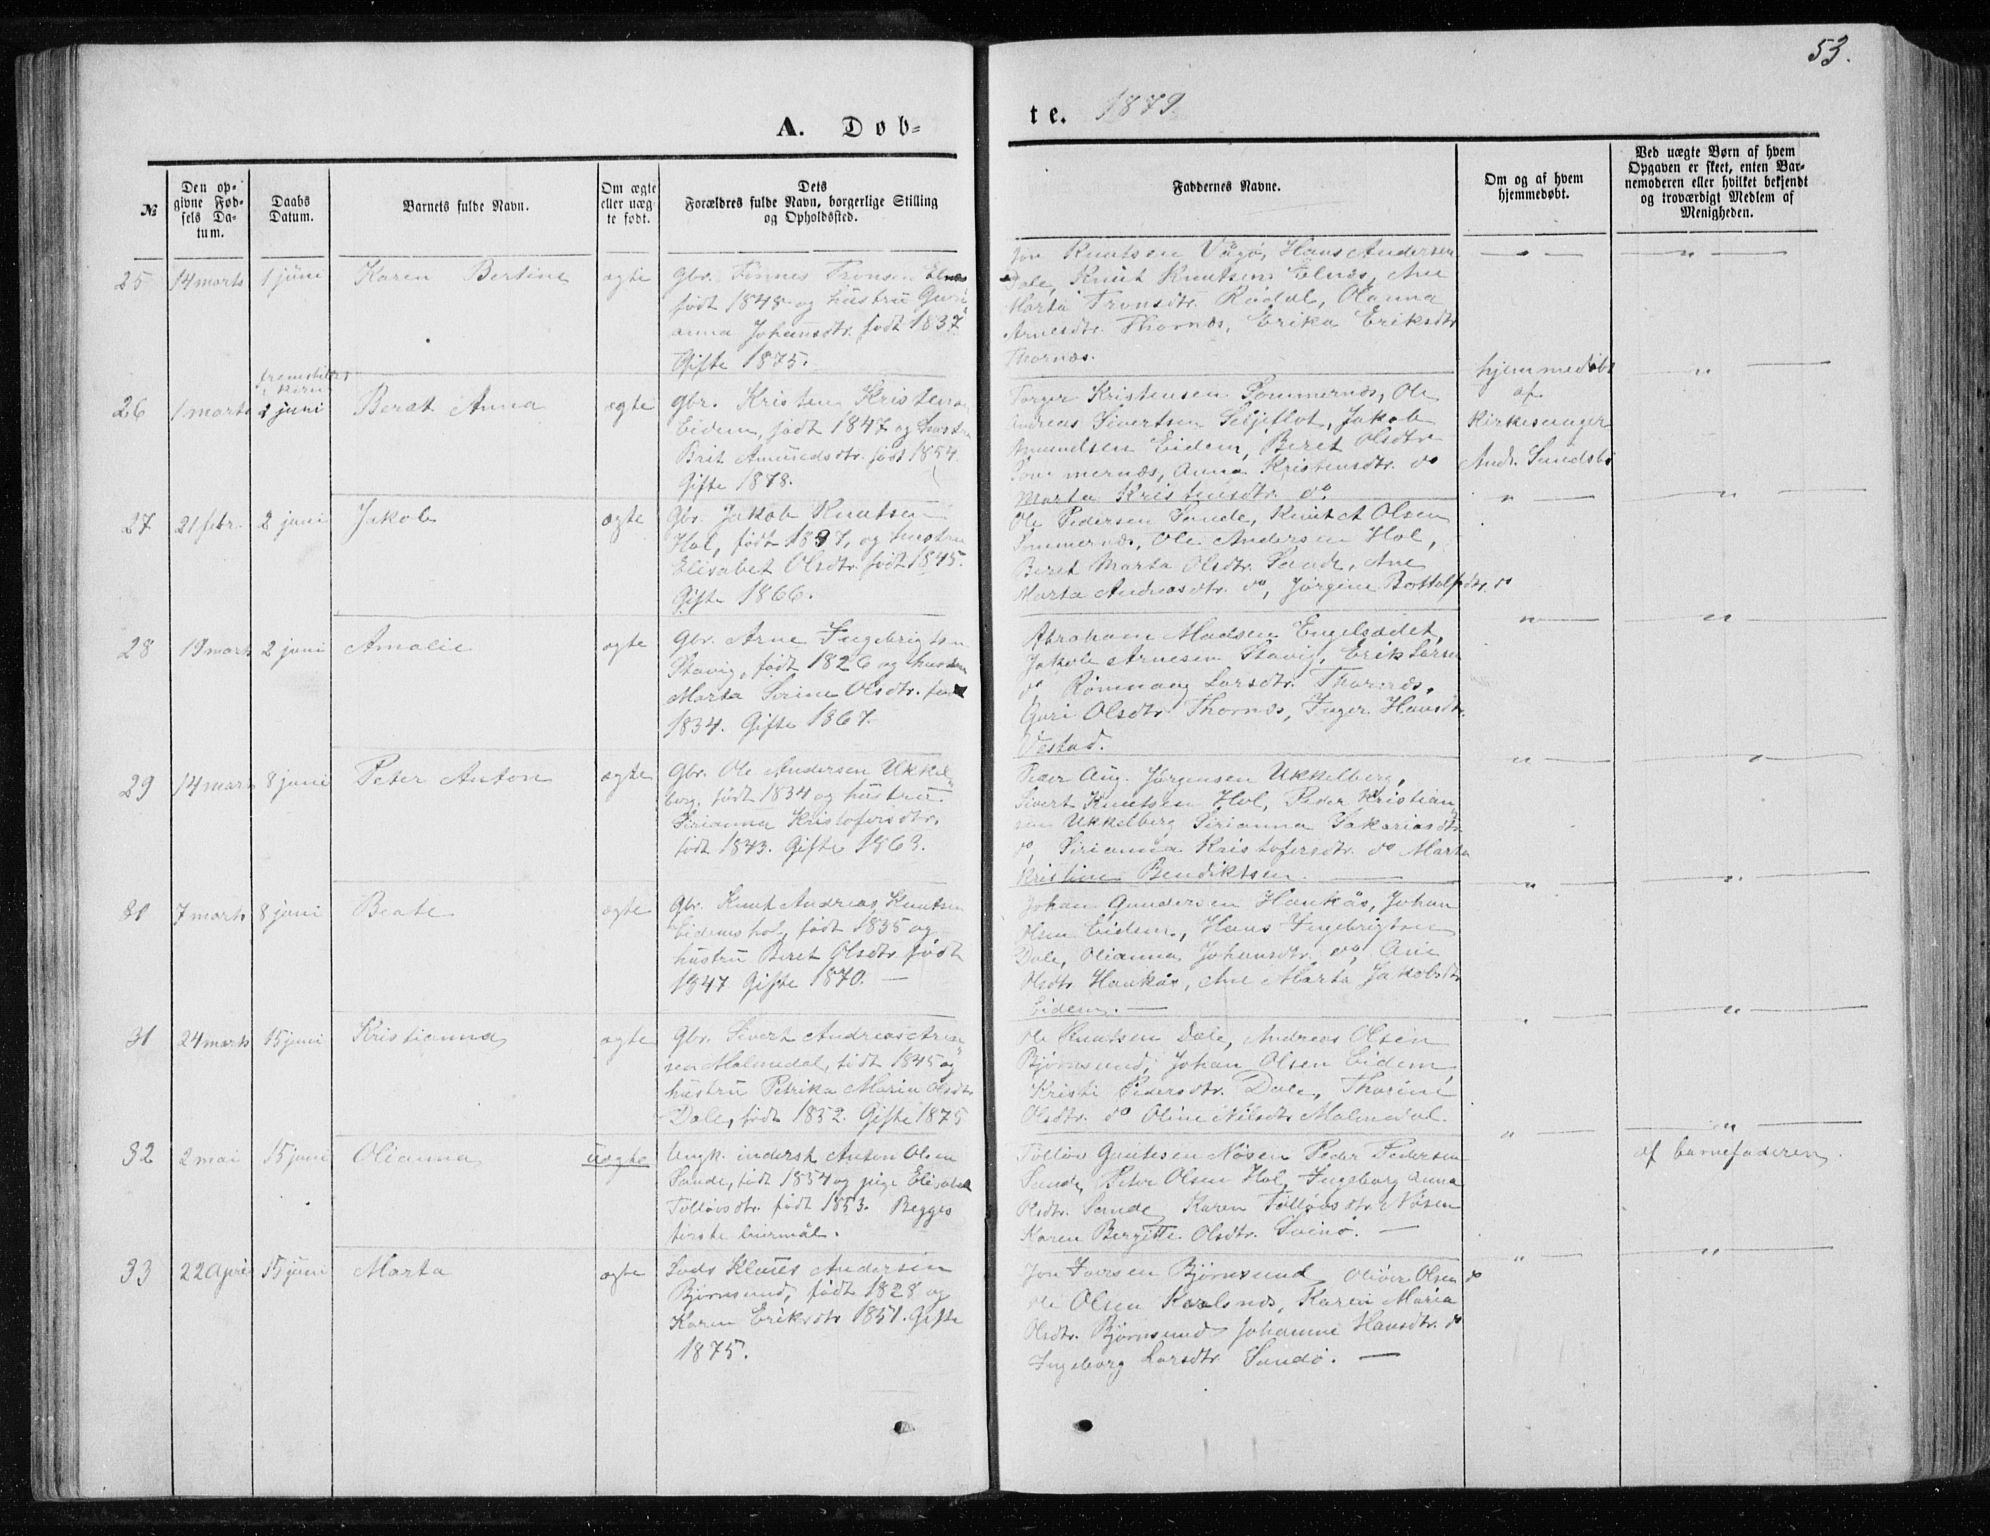 53.
A. Dob=
te. 1879.
№
Den op=
givne Fød=
sels Da=
tum.
Daabs
Datum.
Barnets fulde Navn.
Om ægte
eller uæg=
te født.
Dets
Forældres fulde Navn, borgerlige Stilling
og Opholdssted.
Faddernes Navne.
Om og af hvem
hjemmedøbt.
Ved uægte Børn af hvem
Opgaven er skeet, enten Bar=
nemoderen eller hvilket bekjendt
og troværdigt Medlem af
Menigheden.
25 14 marts 1 juni Karen Bertine ægte Gbr. Tønnes Tronsen Elnæs
født 1848 og hustru Guri
anna Johansdtr. født 1837
Gifte 1875.
Jon Knutsen Vågø, Hans Andersen
Dale, Knut Knutsen Elnæs, Ane
Marta Tronsdtr. Rødal, Olanna
Arnesdtr. Thornæs, Erika Eriksdtr.
Thornæs.
26 1 marts 2 juni Beret Anna ægte Gbr. Kristen Kristensen
Eidem, født 1847 og hustru
Brit Amundsdtr. født 1854.
Gifte 1878.
Torger Kristensen Sommernæs, Ole
Andreas Sivertsen Seljeflot, Jakob
Eidem, Beret Olsdtr.
Sommernæs, Anna Kristensdtr. do
Marta Kristensdtr. do.
hjemmedøbt
af
Kirkesanger
Andr. Sundsbø
27 21 febr. 2 juni Jakob ægte Gbr. Jakob Knutsen
Hol, født 1837, og hustru
Elisabet Olsdtr. født 1845.
Gifte 1866.
Ole Pedersen Sande, Knut A Olsen
Sommernæs, Ole Andersen Hol,
Beret Marta Olsdtr. Sande, Ane
Marta Andreasdtr. do, Jørgine Bottolfsdtr. do
28 19 marts 2 juni Amalie ægte Gbr. Arne Ingebrigtsen
Stavig, født 1826 og hustru
Marta Serine Olsdtr. født
1834. Gifte 1867.
Abraham Madsen Engelsædet,
Jakob Arnesen Stavig, Erik Larsen
do Rønnaug Larsdtr. Thornæs,
Guri Olsdtr. Thornæs, Inger Hansdtr.
Vestad.
29 14 marts 8 juni Peter Anton ægte Gbr. Ole Andersen Ukkel=
berg, født 1834 og hustru
Sirianna Kristofersdtr.
født 1843. Gifte 1863.
Peder Aug. Jørgensen Ukkelberg,
Sivert Knutsen Hol, Peder Kristian
sen Ukkelberg Sirianna Sakariasdtr.
do, Sirianna Kristofersdtr. do Marta
Kristine Bendiktsen.
7 marts 8 juni Beate ægte Gbr. Knut Andreas Knutsen
Eidemshol, født 1835 og
hustru Beret Olsdtr. født
1847 Gifte 1870.
Johan Gundersen Haukås, Johan
Olsen Eidem, Hans Ingebrigtsen
Dale, Olianna Johansdtr. do, Ane
Olsdtr. Haukås, Ane Marta Jakobsdtr.
Eidem.
31 24 marts 15 juni Kristianna ægte Gbr. Sivert Andreas Arne
sen Malmedal, født 1845 og
hustru Petrika Marie Olsdtr.
Dale, født 1852. Gifte 1875
Ole Knutsen Dale, Andreas Olsen
Bjørnsund, Johan Olsen Eidem,
Kristi Pedersdtr. Dale, Thorine
Olsdtr. do Oline Nilsdtr. Malmedal.
32 2 mai 15 juni Olianna uægte Ungk. inderst Anton Olsen
Sande, født 1854 og pige Elisabet
Tølløvsdtr. født 1853. Begges
første leiermål.
Tølløv Nøsen Peder Pedersen
Sande, Peter Olsen Hol, Ingeborg Anna
Olsdtr. Sande Karen Tølløvsdtr. Nøsen
Karen Bergitte Olsdtr. Svinø.
af barnefaderen.
33 22 April 15 juni Marta ægte Lods Klaus Andersen
Bjørnsund, født 1828 og
Karen Eriksdtr. 1851. Gifte
1875.
Jon Iversen Bjørnsund, Oliver Olsen do
Ole Olsen Karlsnæs, Karen Maria
Olsdtr. Bjørnsund Johanne Hansdtr. do
Ingeborg Larsdtr. Sandø.